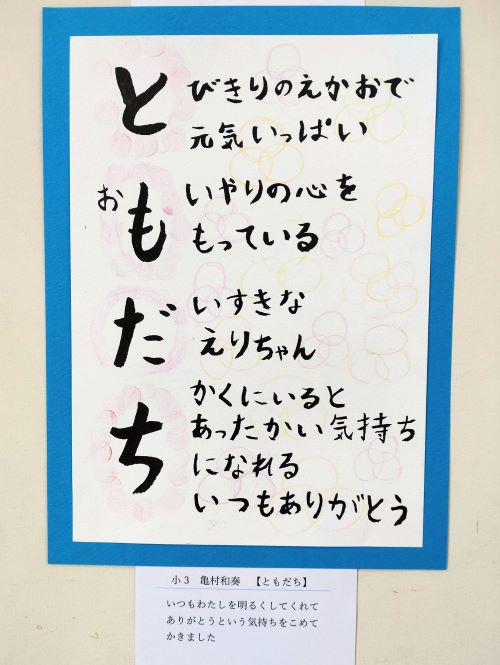 とびきりのえがおで
元気いっぱい
おもいやりの心を
もっている
だいすきな
えりちゃん
ちかくにいると
あったかい気持ち
になれる
いつもありがとう
小3 亀村和奏 【ともだち】
いつもわたしを明るくしてくれて
ありがとうという気持ちをこめて
かきました